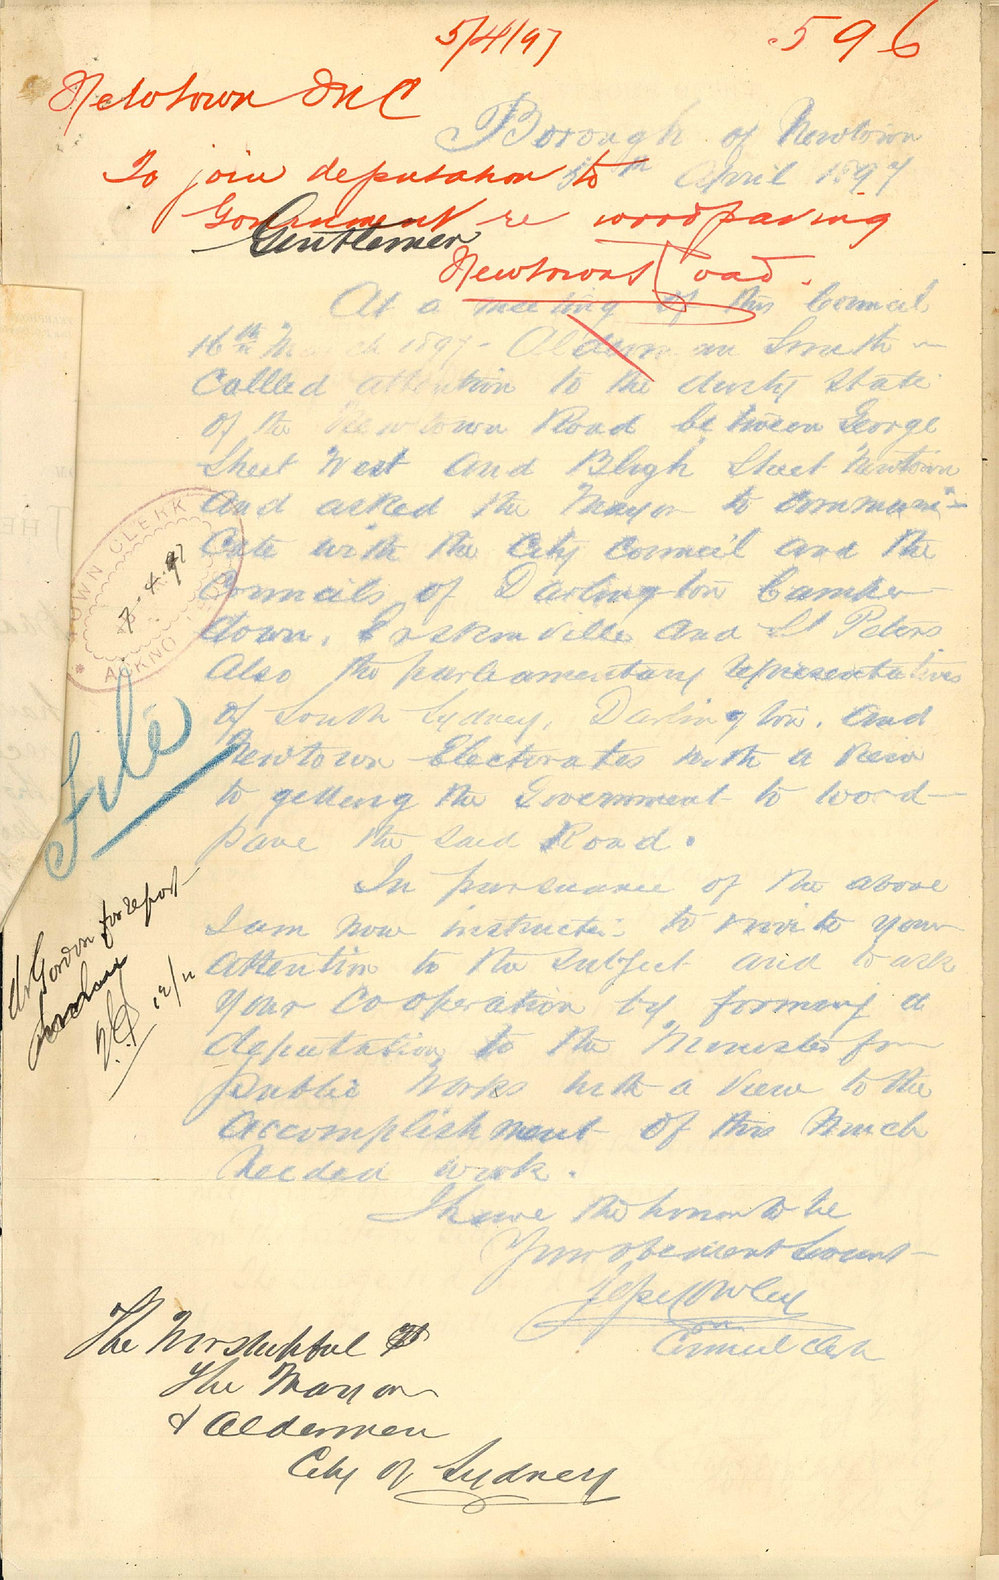 5/4/97
596
Newtown M C
Borough of Newtown
To join deputation to
5th April 1897
Government re woodpaving
Gentlemen
Newtown Road.
At a meeting of this Council
16th March 1897 - Alderman Smith
Called attention to the dusty state
of the Newtown Road between George
Street West and Bligh Street Newtown
and asked the Mayor to communi-
cate with the City Council and the
Councils of Darlington Camper
down, Erskineville and St Peters
Also the parliamentary representatives
of South Sydney, Darlington, and
Newtown Electorates with a view
to getting the Government to wood
pave the said Road.
In pursuance of the above
I am now instructed to invite your
attention to the subject and to ask
your cooperation by forming a
deputation to the Minister for
Public Works with a view to the
accomplishment of this much
needed work.
I have the honor to be
Your obedient Servant
Council Clerk
The Worshipful
The Mayor
& Aldermen
City of Sydney
TOWN CLERK
7.4.97
ACKNO
File
Mr Gordon for report
12/11